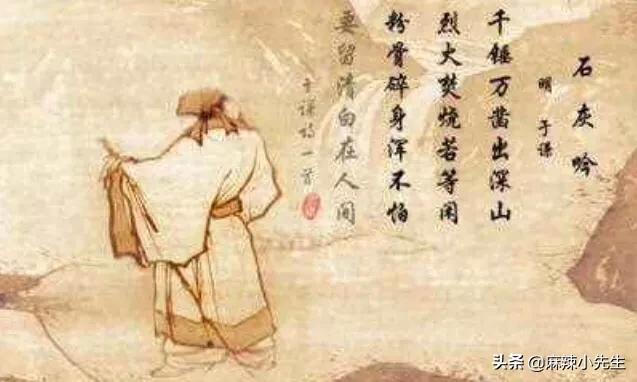 石灰吟
明 于谦
千锤万凿出深山
烈火焚烧若等闲
粉骨碎身浑不怕
要留清白在人间
于谦诗一首
头条 @麻辣小先生